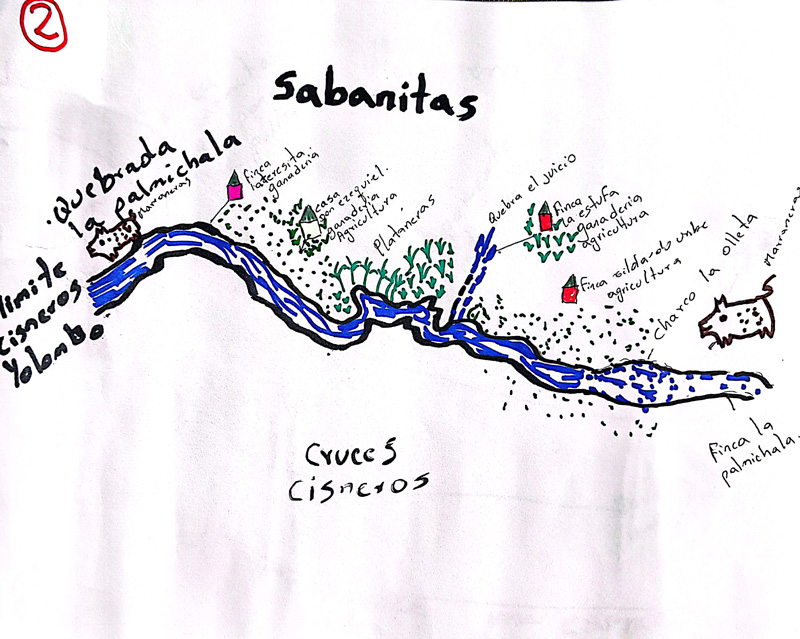 2
Sabanitas
Quebrada
la palmichala
marraneras
limite
cisneros
Yolombo
Finca
ganaderia
casa
Don ezequiel.
Ganaderia
Agricultura
Plataneras
Quebra el juicio
Finca
la estufa
ganaderia
agricultura
Finca Gildardo uribe
agricultura
charco la olleta
Marraneras
Finca la
palmichala.
Cruces
Cisneros